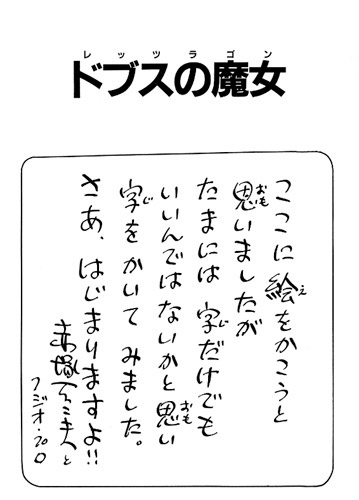 レッツラゴン
ドブスの魔女
ここに絵をかこうと
思いましたが
たまには 字だけでも
いいんではないかと思い
字をかいて みました。
さあ、はじまりますよ!!
赤塚不二夫と
フジオ・プロ